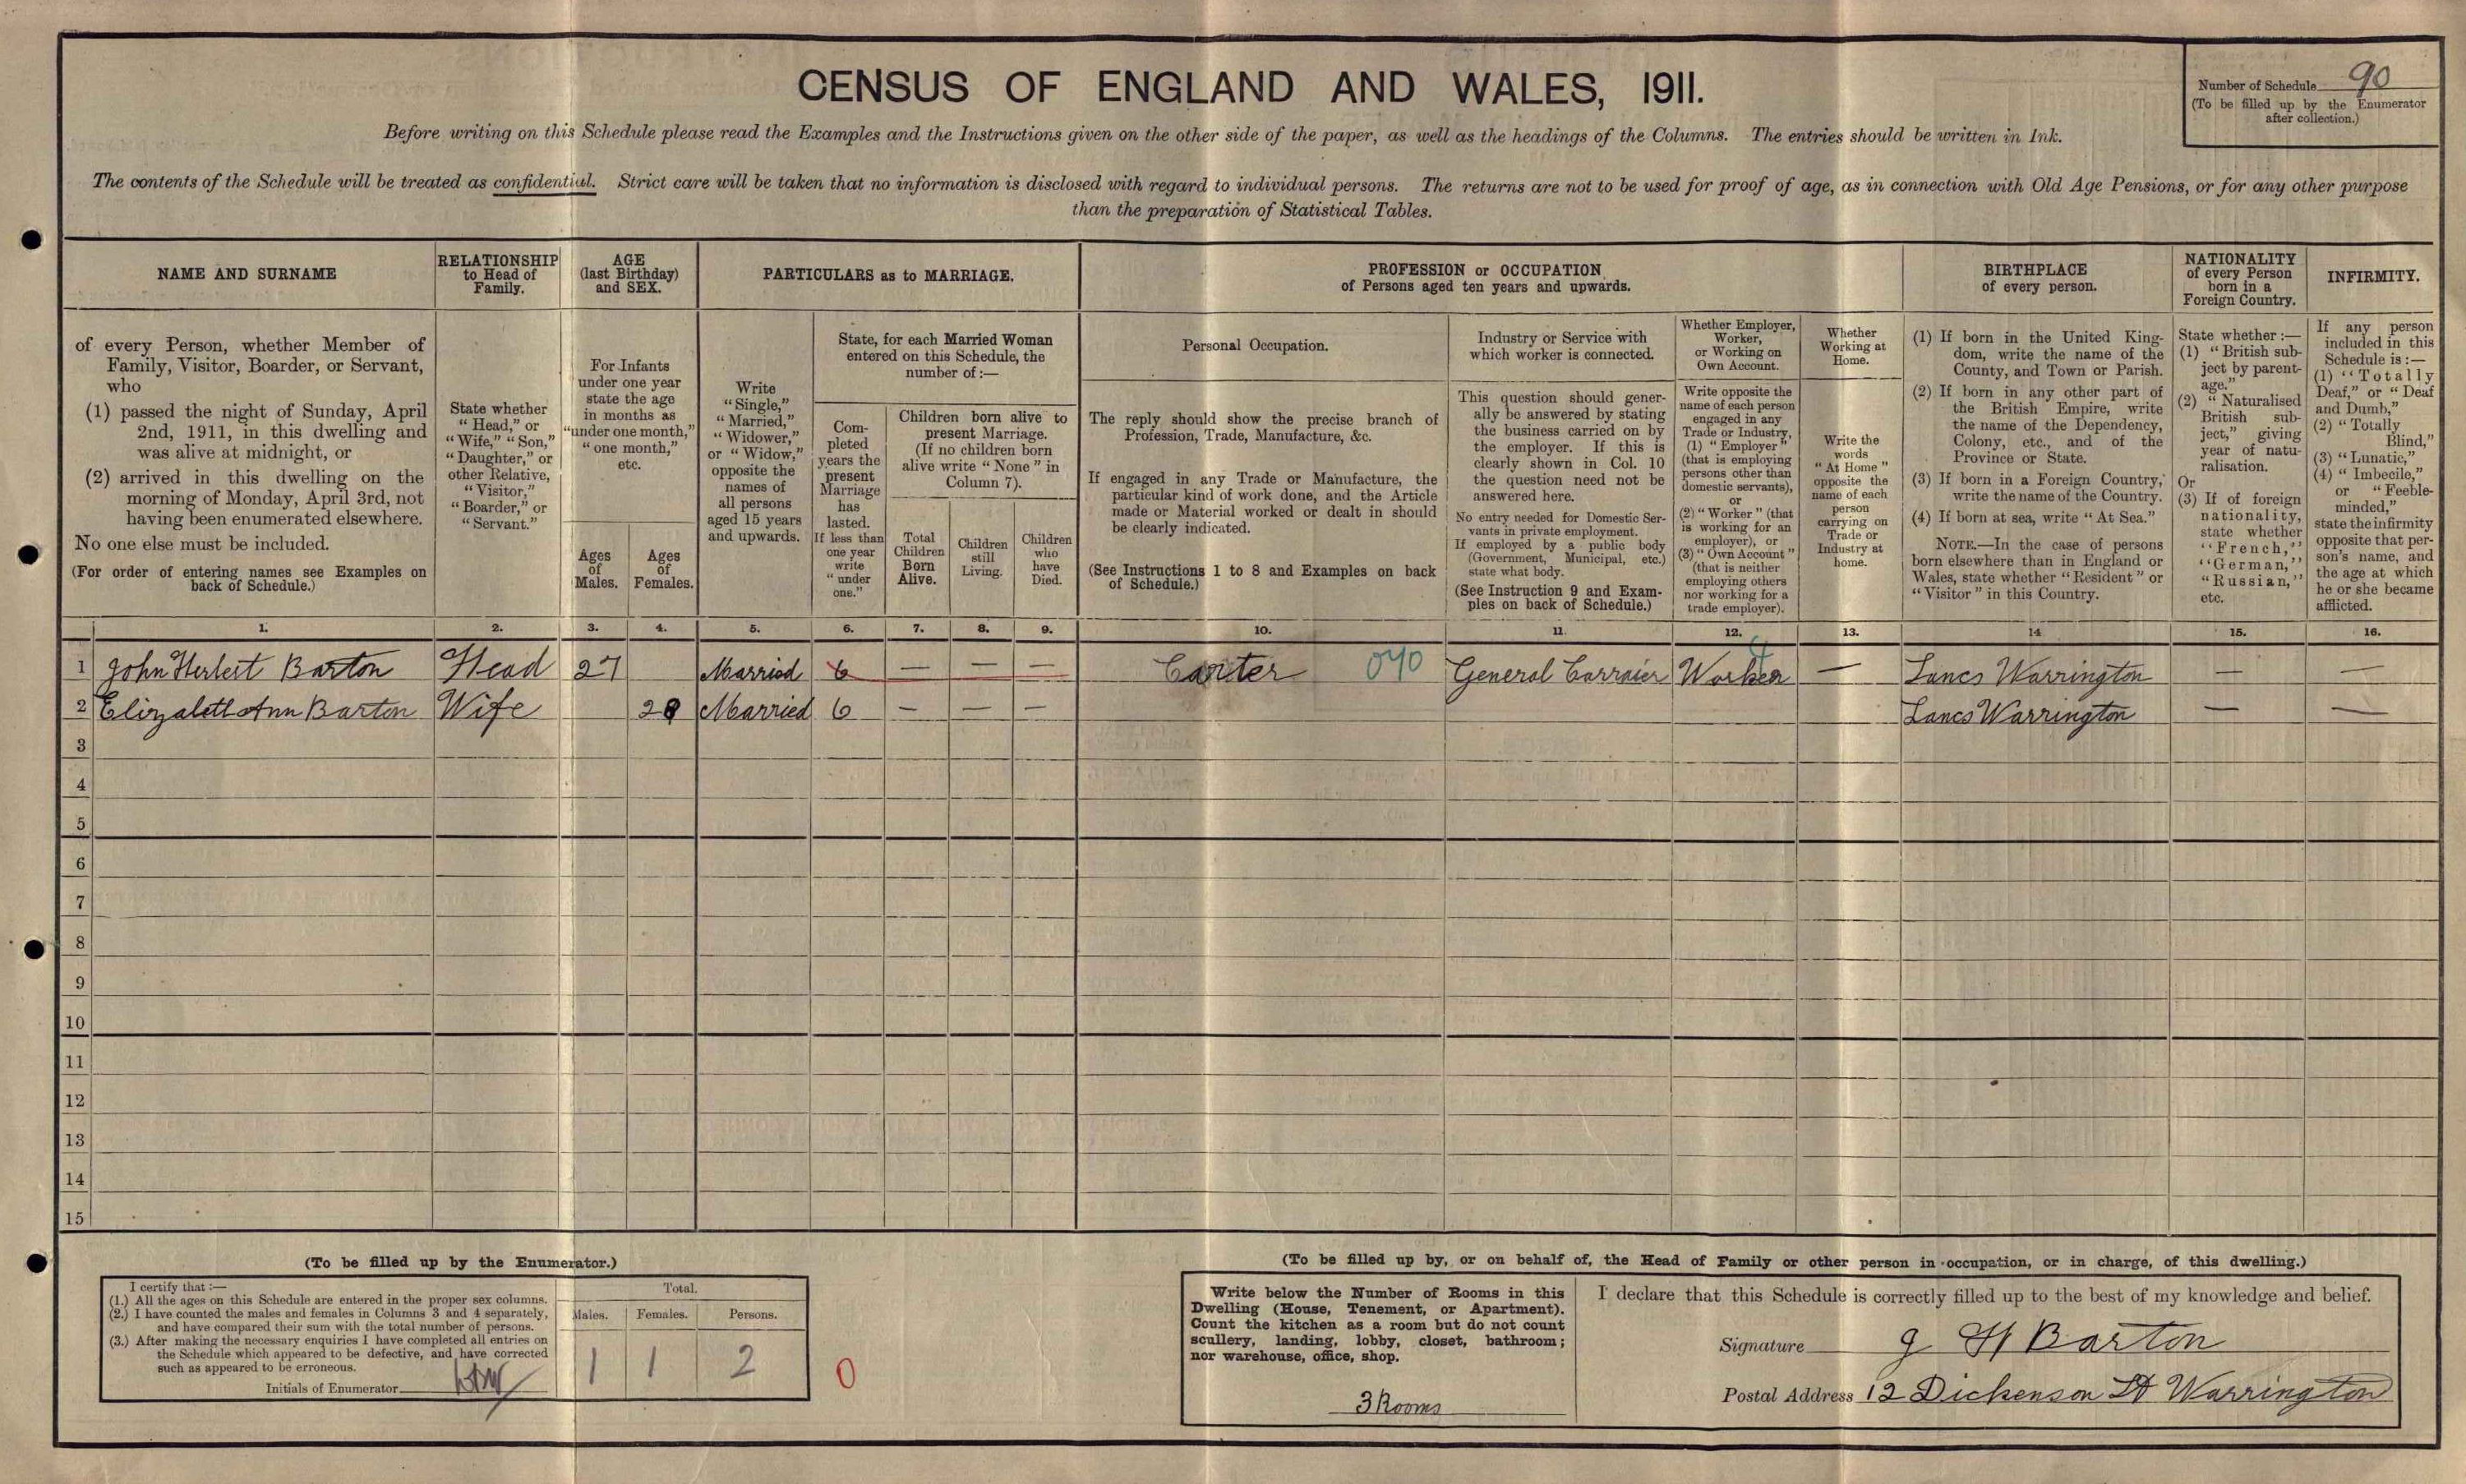 CENSUS OF ENGLAND AND WALES, 1911.
Number of Schedule 90
(To be filled up by the Enumerator
after collection.)
Before writing on this Schedule please read the Examples and the Instructions given on the other side of the paper, as well as the headings of the Columns. The entries should be written in Ink.
The contents of the Schedule will be treated as confidential. Strict care will be taken that no information is disclosed with regard to individual persons. The returns are not to be used for proof of age, as in connection with Old Age Pensions, or for any other purpose
than the preparation of Statistical Tables.
NAME AND SURNAME
of every Person, whether Member of
Family, Visitor, Boarder, or Servant,
who
(1) passed the night of Sunday, April
2nd, 1911, in this dwelling and
was alive at midnight, or
(2) arrived in this dwelling on the
morning of Monday, April 3rd, not
having been enumerated elsewhere.
No one else must be included.
(For order of entering names see Examples on
back of Schedule.)
RELATIONSHIP
to Head of
Family.
State whether
"Head," or
"Wife," "Son,"
"Daughter," or
other Relative,
"Visitor,"
"Boarder," or
"Servant."
AGE
(last Birthday)
and SEX.
For Infants
under one year
state the age
in months as
"under one month,"
"one month,"
etc.
Ages
of
Males.
Ages
of
Females.
PARTICULARS as to MARRIAGE.
Write
"Single,"
"Married,"
"Widower,"
or "Widow,"
opposite the
names of
all persons
aged 15 years
and upwards.
State, for each Married Woman
entered on this Schedule, the
number of:—
Com-
pleted
years the
present
Marriage
has
lasted.
If less than
one year
write
"under
one."
Children born alive to
present Marriage.
(If no children born
alive write "None" in
Column 7).
Total
Children
Born
Alive.
Children
still
Living.
Children
who
have
Died.
PROFESSION or OCCUPATION
of Persons aged ten years and upwards.
Personal Occupation.
The reply should show the precise branch of
Profession, Trade, Manufacture, &c.
If engaged in any Trade or Manufacture, the
particular kind of work done, and the Article
made or Material worked or dealt in should
be clearly indicated.
(See Instructions 1 to 8 and Examples on back
of Schedule.)
Industry or Service with
which worker is connected.
This question should gener-
ally be answered by stating
the business carried on by
the employer. If this is
clearly shown in Col. 10
the question need not be
answered here.
No entry needed for Domestic Ser-
vants in private employment.
If employed by a public body
(Government, Municipal, etc.)
state what body.
(See Instruction 9 and Exam-
ples on back of Schedule.)
Whether Employer,
Worker,
or Working on
Own Account.
Write opposite the
name of each person
engaged in any
Trade or Industry,
(1) "Employer"
(that is employing
persons other than
domestic servants),
or
(2) "Worker" (that
is working for an
employer), or
(3) "Own Account"
(that is neither
employing others
nor working for a
trade employer).
Whether
Working at
Home.
Write the
words
"At Home"
opposite the
name of each
person
carrying on
Trade or
Industry at
home.
BIRTHPLACE
of every person.
(1) If born in the United King-
dom, write the name of the
County, and Town or Parish.
(2) If born in any other part of
the British Empire, write
the name of the Dependency,
Colony, etc., and of the
Province or State.
(3) If born in a Foreign Country,
write the name of the Country.
(4) If born at sea, write "At Sea."
NOTE.—In the case of persons
born elsewhere than in England or
Wales, state whether "Resident" or
"Visitor" in this Country.
NATIONALITY
of every Person
born in a
Foreign Country.
State whether:—
(1) "British sub-
ject by parent-
age."
(2) "Naturalised
British sub-
ject," giving
year of natu-
ralisation.
Or
(3) If of foreign
nationality,
state whether
"French,"
"German,"
"Russian,"
etc.
INFIRMITY.
If any person
included in this
Schedule is:—
(1) "Totally
Deaf," or "Deaf
and Dumb,"
(2) "Totally
Blind,"
(3) "Lunatic,"
(4) "Imbecile,"
or "Feeble-
minded,"
state the infirmity
opposite that per-
son's name, and
the age at which
he or she became
afflicted.
1. 2. 3. 4. 5. 6. 7. 8. 9. 10. 11. 12. 13. 14 15. 16.
1 John Herbert Barton Head 27 Married 6 — — — Carter 070 General Carraier Worker — Lancs Warrington — —
2 Elizabeth Ann Barton Wife 28 Married 6 — — — Lancs Warrington — —
3
4
5
6
7
8
9
10
11
12
13
14
15
(To be filled up by the Enumerator.)
I certify that:—
(1.) All the ages on this Schedule are entered in the proper sex columns.
(2.) I have counted the males and females in Columns 3 and 4 separately,
and have compared their sum with the total number of persons.
(3.) After making the necessary enquiries I have completed all entries on
the Schedule which appeared to be defective, and have corrected
such as appeared to be erroneous.
Initials of Enumerator
Total.
Males. Females. Persons.
1 1 2
0
(To be filled up by, or on behalf of, the Head of Family or other person in occupation, or in charge, of this dwelling.)
Write below the Number of Rooms in this
Dwelling (House, Tenement, or Apartment).
Count the kitchen as a room but do not count
scullery, landing, lobby, closet, bathroom;
nor warehouse, office, shop.
3 Rooms
I declare that this Schedule is correctly filled up to the best of my knowledge and belief.
Signature J H Barton
Postal Address 12 Dickenson St Warrington